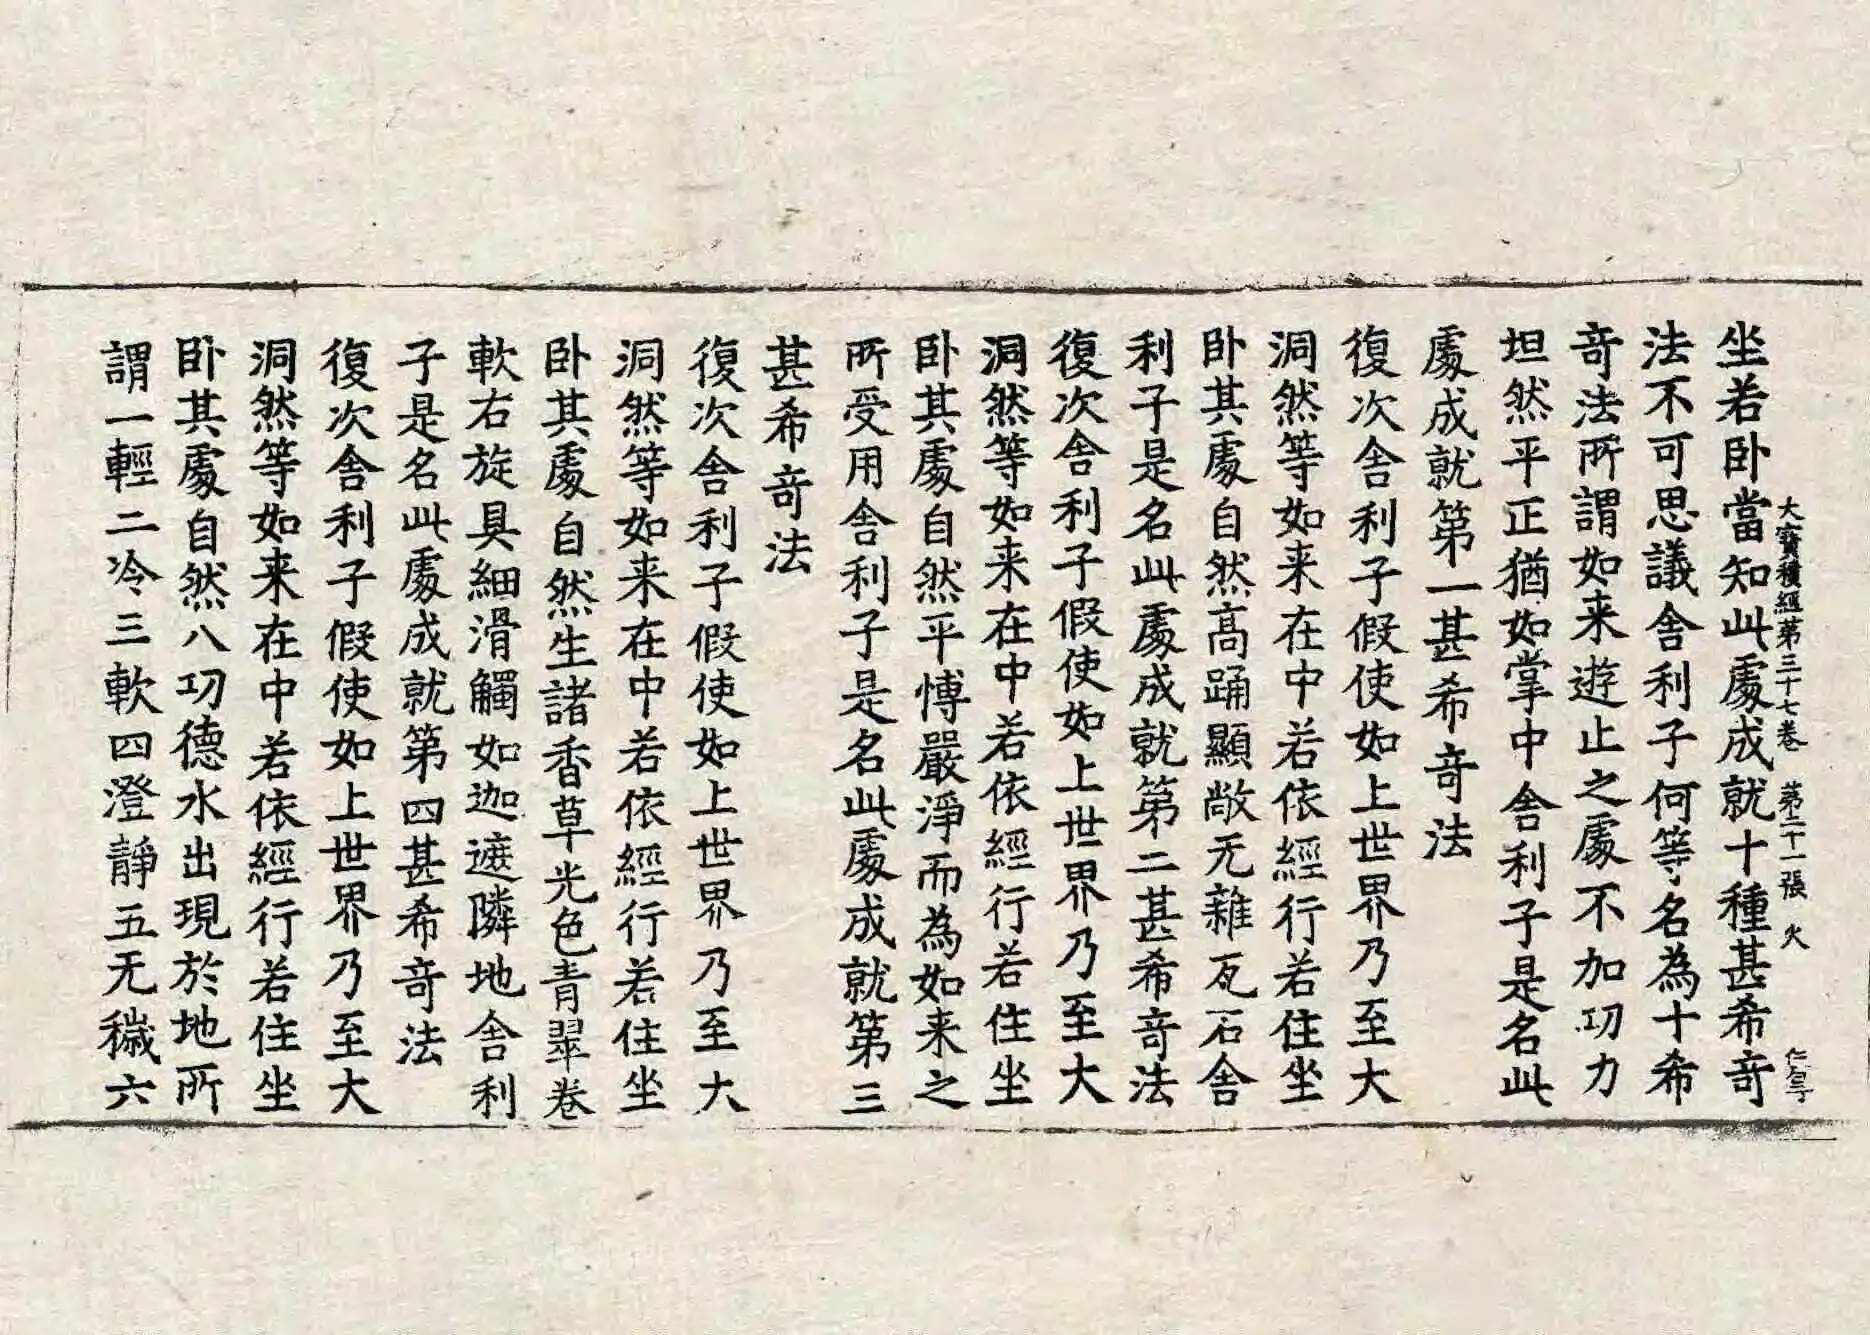 大寶積經第三十七卷 第二十一張 火
坐若卧當知此處成就十種甚希奇
法不可思議舍利子何等名為十希
奇法所謂如来遊止之處不加功力
坦然平正猶如掌中舍利子是名此
處成就第一甚希奇法
復次舍利子假使如上世界乃至大
洞然等如来在中若依經行若住坐
卧其處自然高踊顯敞无雜瓦石舍
利子是名此處成就第二甚希奇法
復次舍利子假使如上世界乃至大
洞然等如来在中若依經行若住坐
卧其處自然平博嚴淨而為如来之
所受用舍利子是名此處成就第三
甚希奇法
復次舍利子假使如上世界乃至大
洞然等如来在中若依經行若住坐
卧其處自然生諸香草光色青翠卷
軟右旋具細滑觸如迦遮隣地舍利
子是名此處成就第四甚希奇法
復次舍利子假使如上世界乃至大
洞然等如来在中若依經行若住坐
卧其處自然八功德水出現於地所
謂一輕二冷三軟四澄靜五无穢六